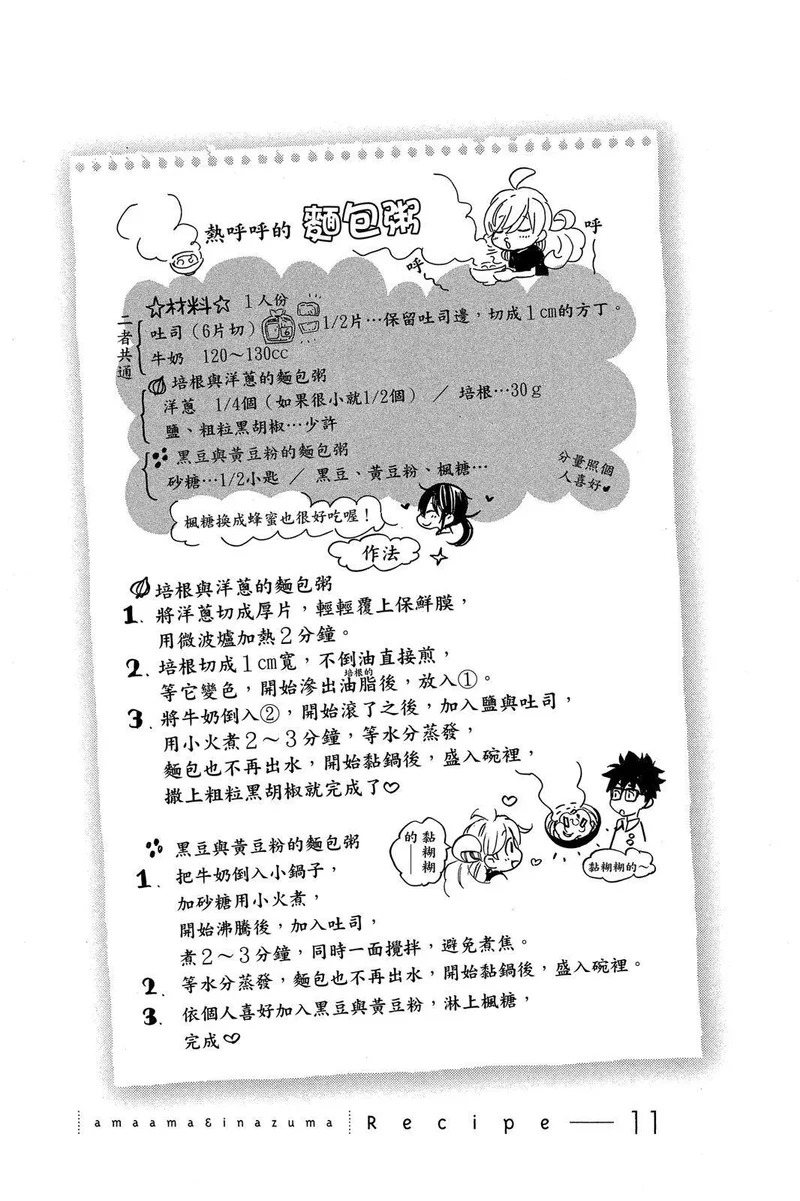 熱呼呼的 麵包粥
呼
呼
☆材料☆ 1人份
二者共通
吐司（6片切） 1/2片…保留吐司邊，切成1cm的方丁。
牛奶 120～130cc
培根與洋蔥的麵包粥
洋蔥 1/4個（如果很小就1/2個） ／ 培根…30g
鹽、粗粒黑胡椒…少許
黑豆與黃豆粉的麵包粥
砂糖…1/2小匙 ／ 黑豆、黃豆粉、楓糖…
分量照個
人喜好♥
楓糖換成蜂蜜也很好吃喔！
作法
培根與洋蔥的麵包粥
1. 將洋蔥切成厚片，輕輕覆上保鮮膜，
用微波爐加熱2分鐘。
2. 培根切成1cm寬，不倒油直接煎，
培根的
等它變色，開始滲出油脂後，放入①。
3. 將牛奶倒入②，開始滾了之後，加入鹽與吐司，
用小火煮2～3分鐘，等水分蒸發，
麵包也不再出水，開始黏鍋後，盛入碗裡，
撒上粗粒黑胡椒就完成了♡
黏糊糊
的—
黏糊糊的～
黑豆與黃豆粉的麵包粥
1. 把牛奶倒入小鍋子，
加砂糖用小火煮，
開始沸騰後，加入吐司，
煮2～3分鐘，同時一面攪拌，避免煮焦。
2. 等水分蒸發，麵包也不再出水，開始黏鍋後，盛入碗裡。
3. 依個人喜好加入黑豆與黃豆粉，淋上楓糖，
完成♡
amaama&inazuma Recipe — 11